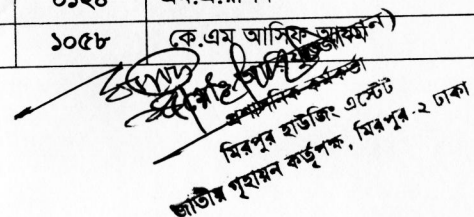 ১০৫৮ কে.এম আসিফ
প্রশাসনিক কর্মকর্তা
মিরপুর হাউজিং এস্টেট
জাতীয় গৃহায়ন কর্তৃপক্ষ, মিরপুর-২ ঢাকা